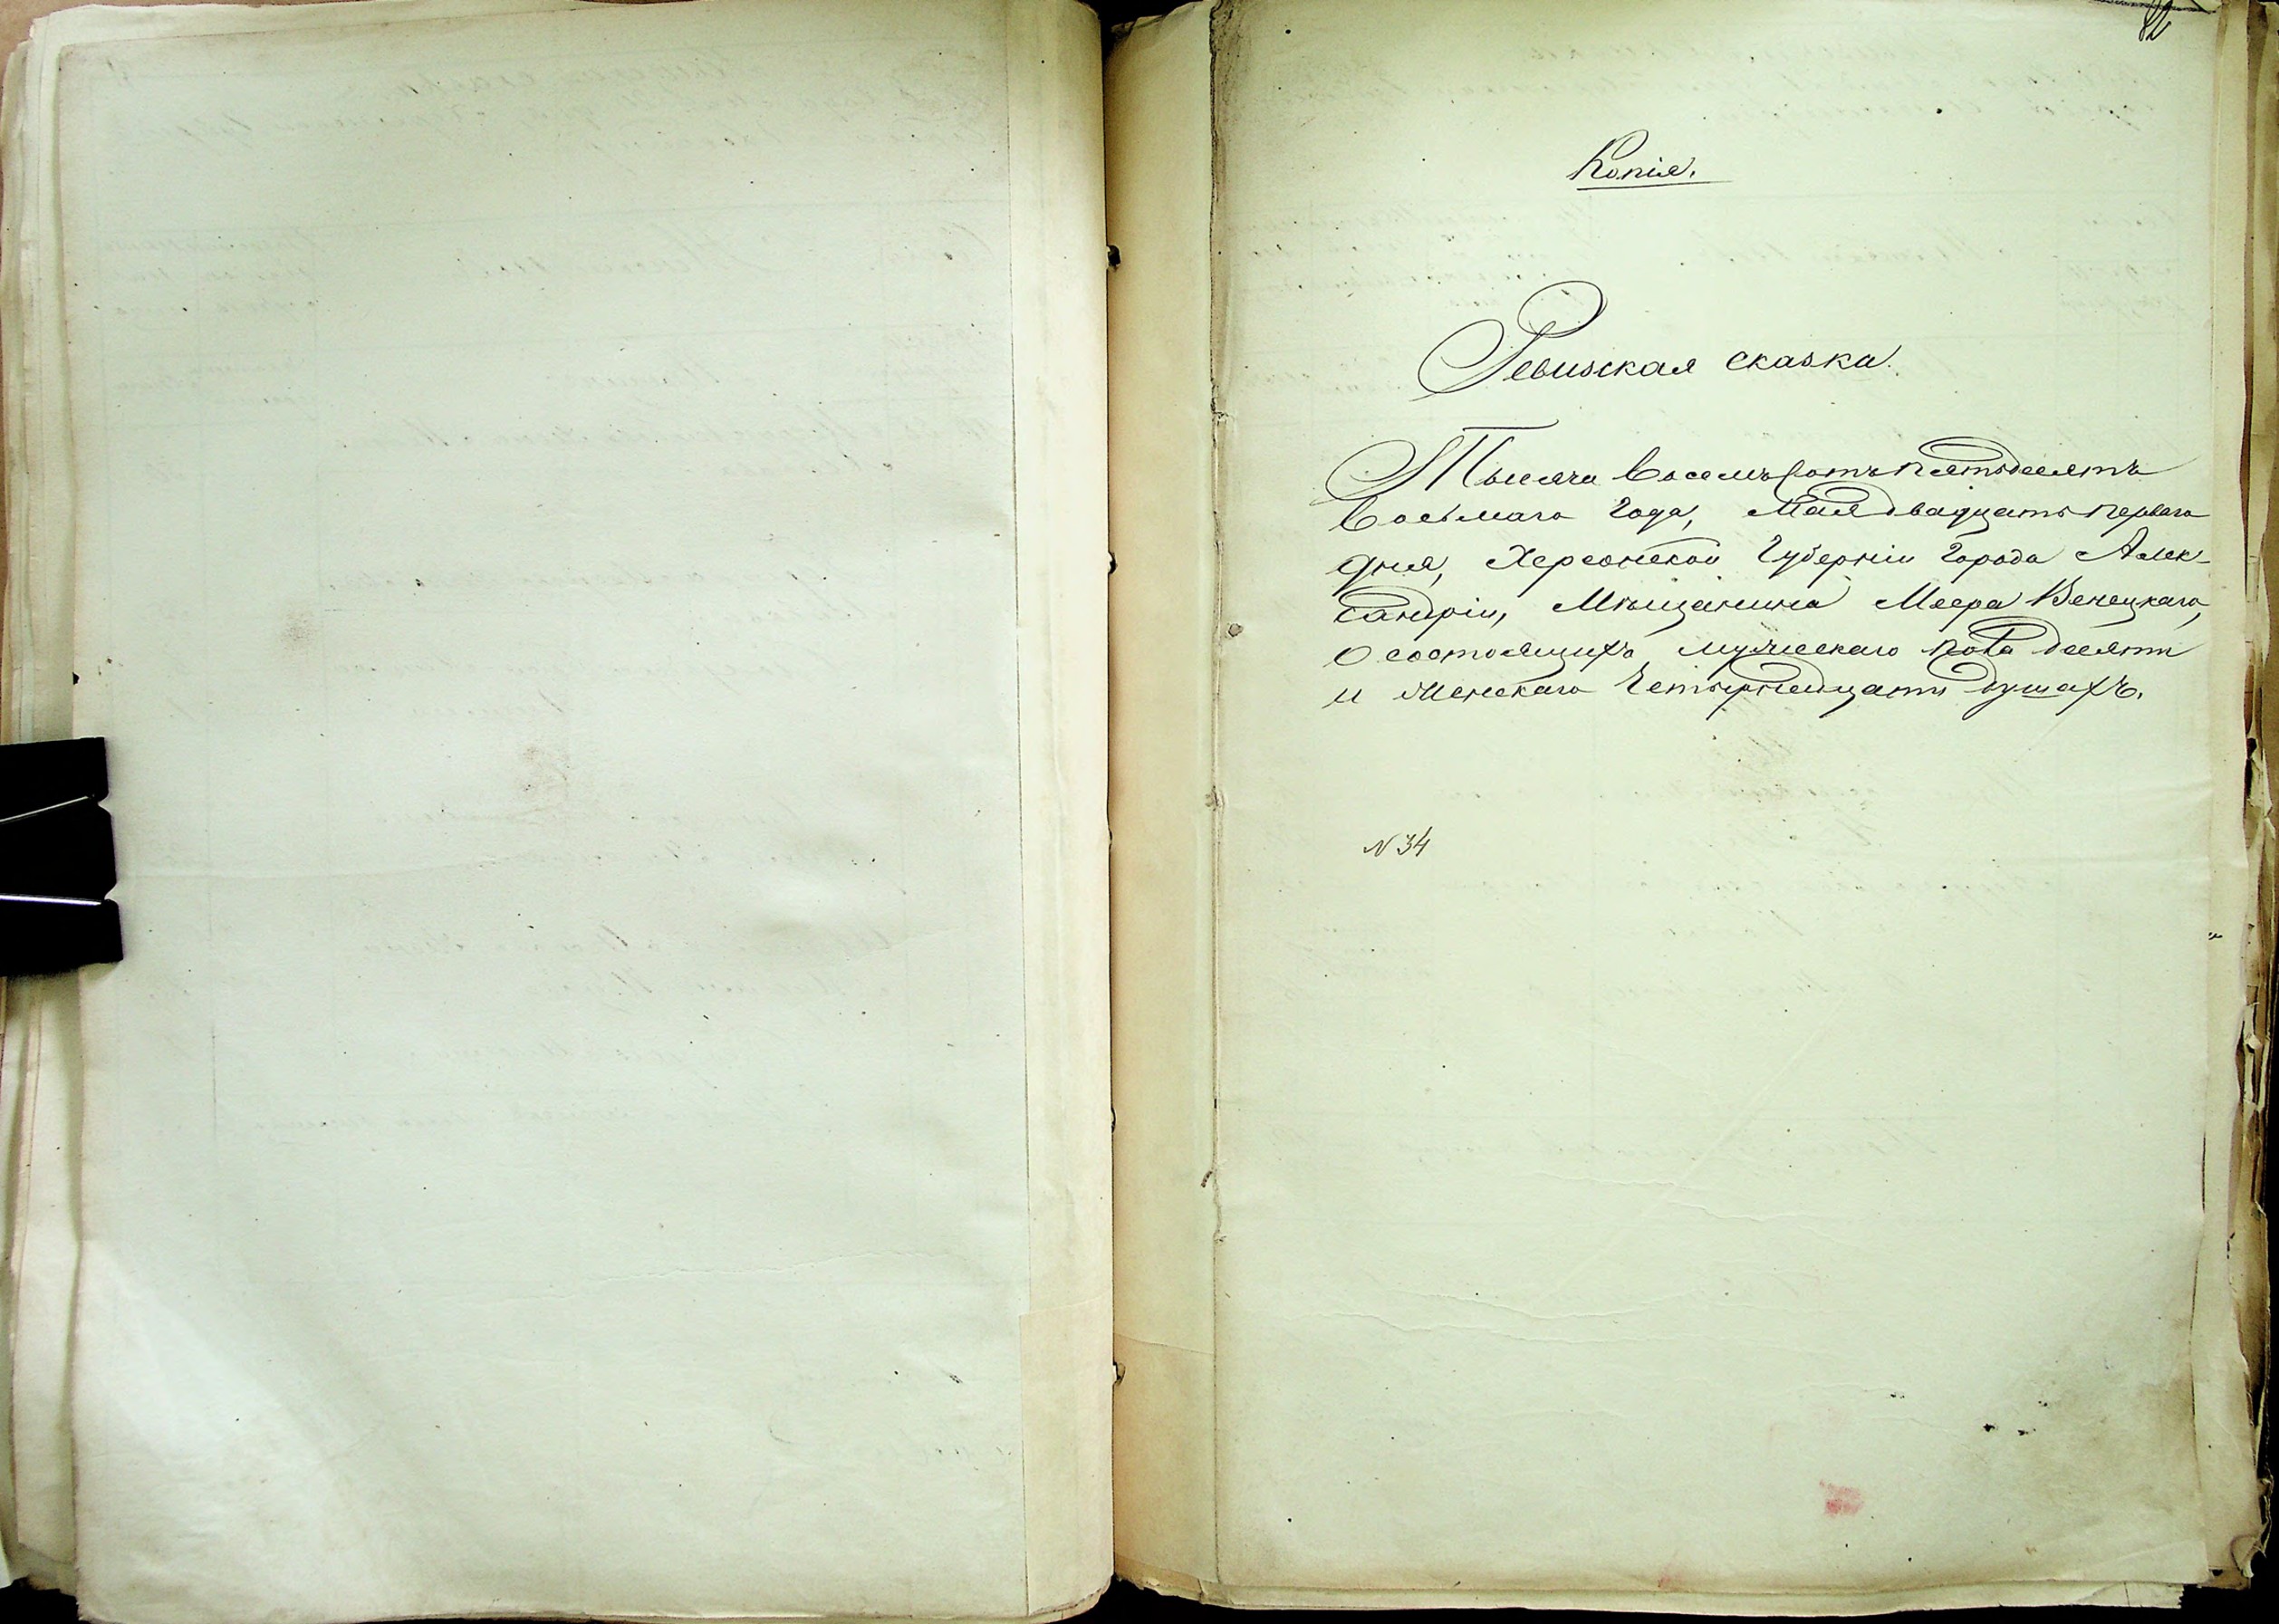 Копія.
Ревизская сказка.
Тысяча восемьсотъ пятьдесятъ
восьмаго года, Мая двадцать перваго
дня, Херсонской Губерніи города Алек-
сандріи, Мѣщанина Меера Венецкаго,
о состоящихъ мужескаго пола десяти
и женскаго четырнадцати душахъ.
N 34